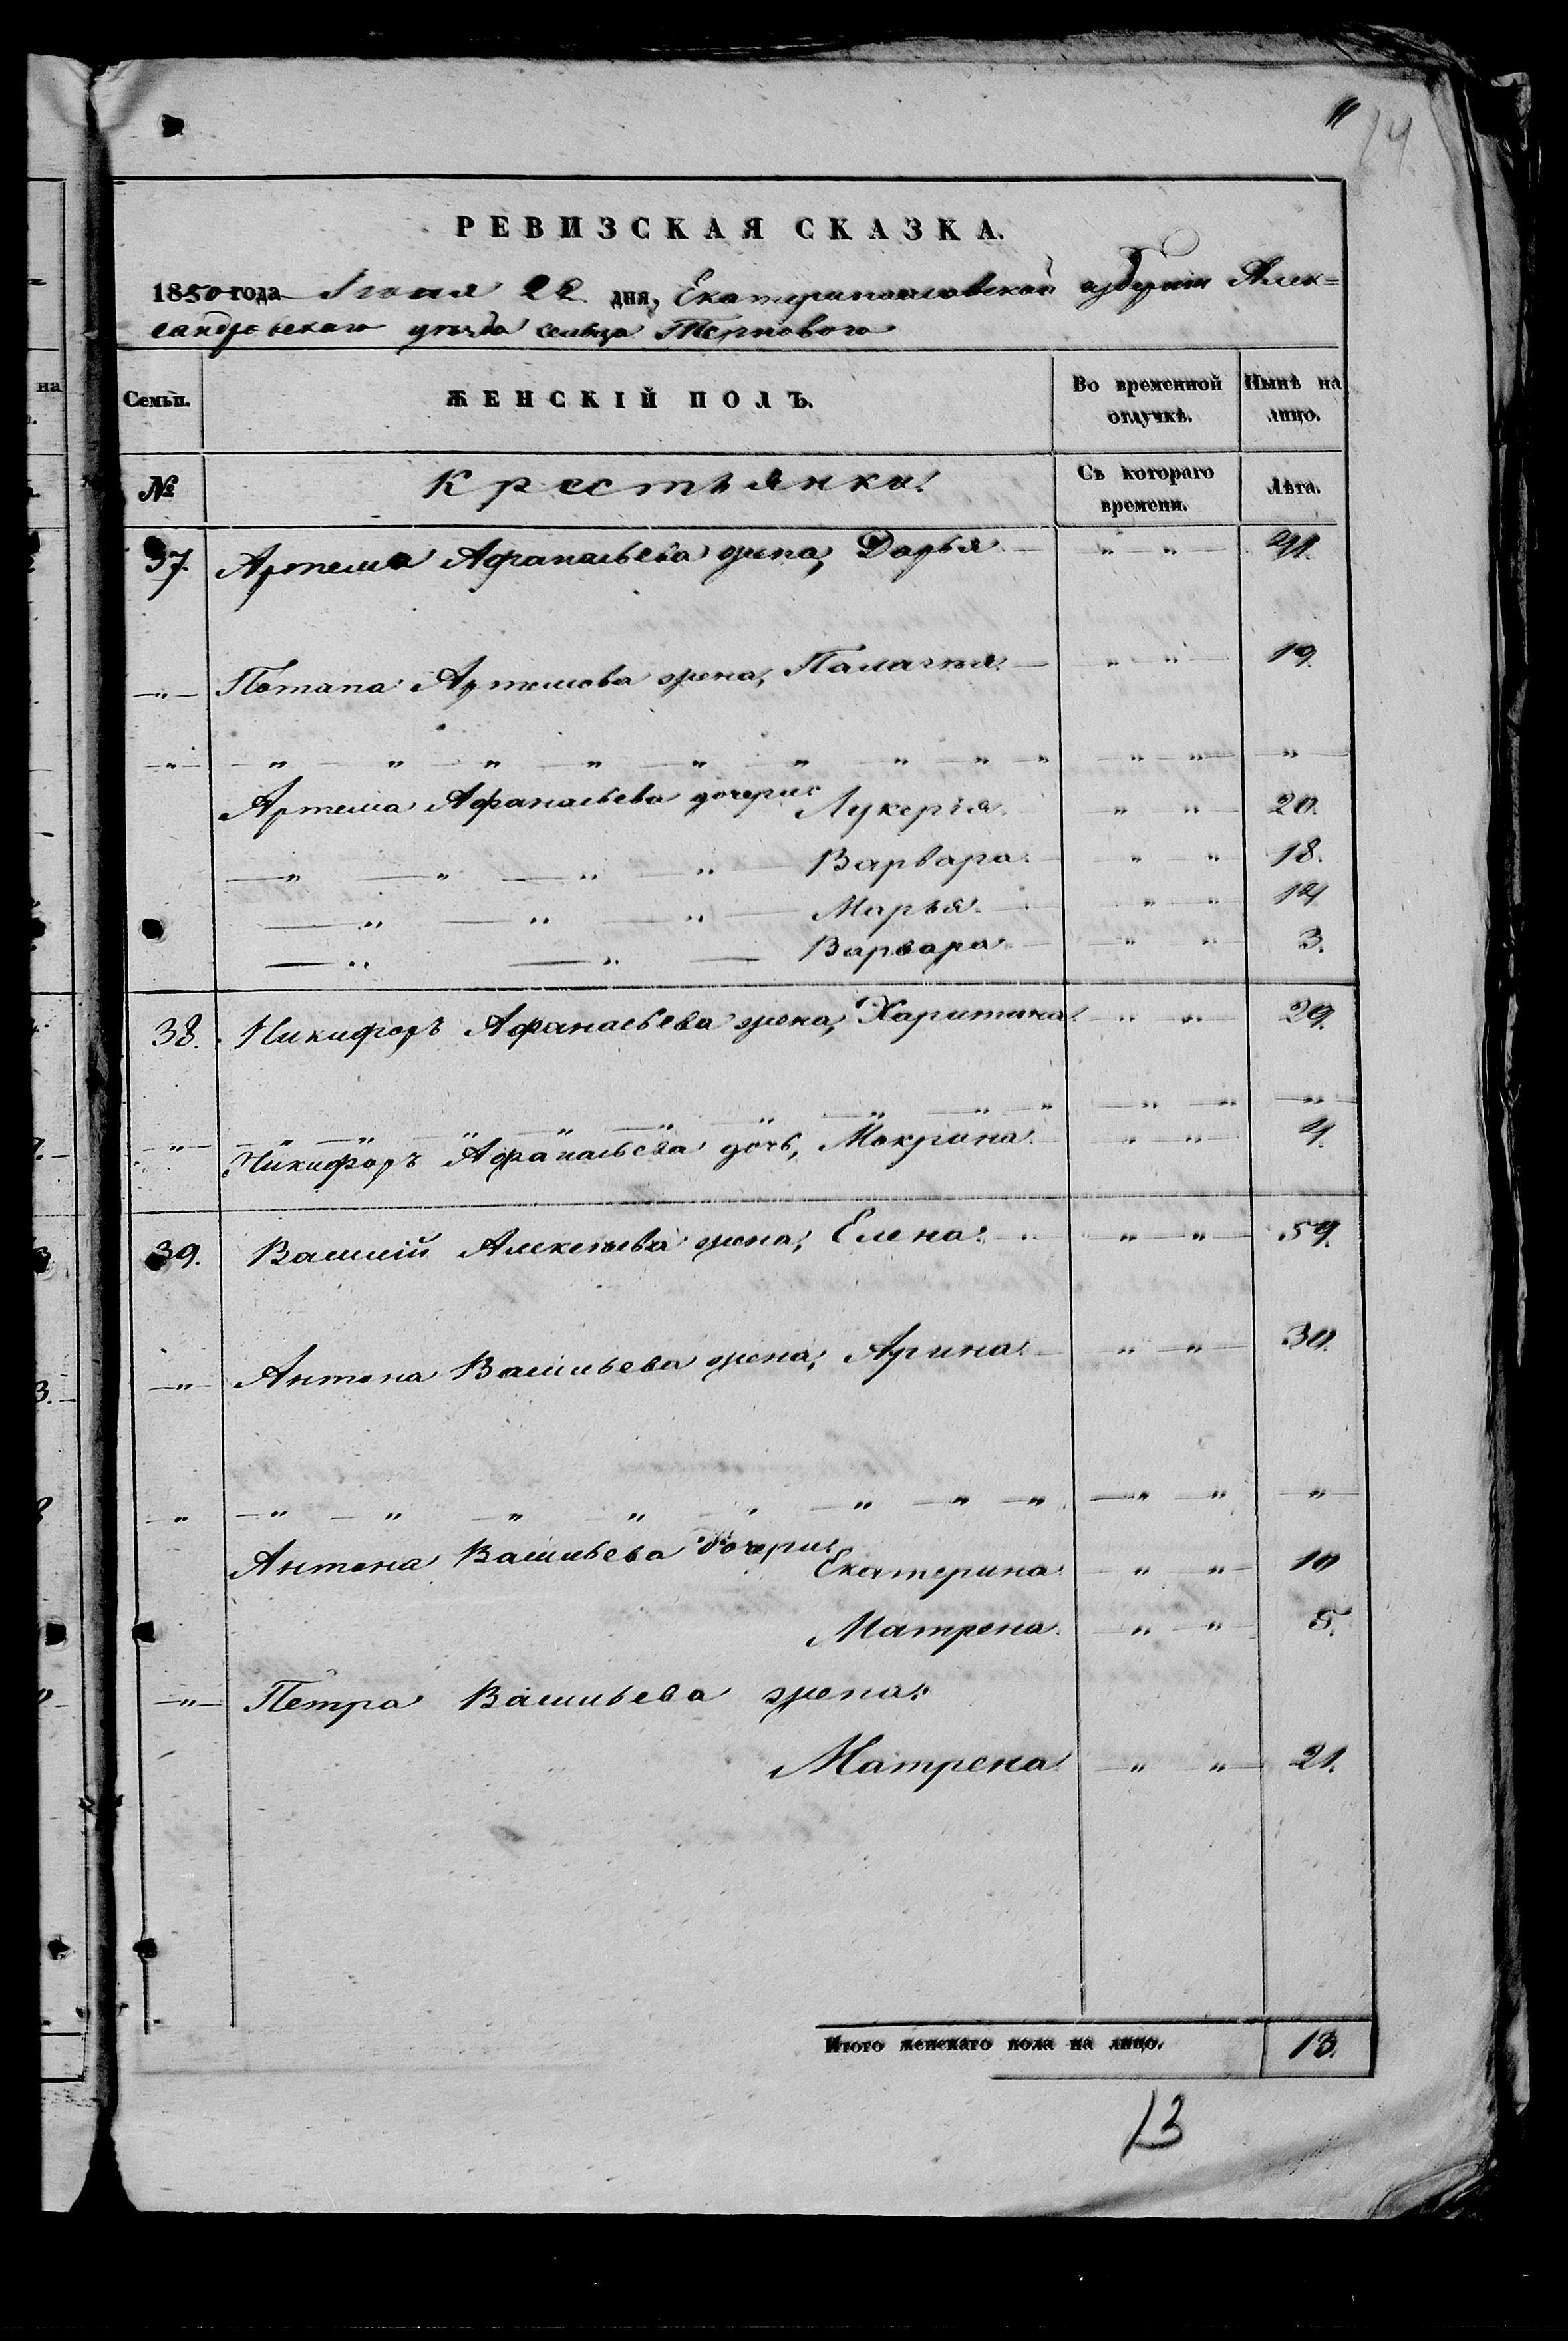 14
РЕВИЗСКАЯ СКАЗКА.
1850 года Іюня 22 дня, Екатеринославской губерніи Алек=
сандровскаго уѣзда сельца Терноваго
на
Семьи. ЖЕНСКІЙ ПОЛЪ. Во временной отлучкѣ. Нынѣ на лицо.
№ Крестьянки. Съ котораго времени. Лѣта.
37. Артема Афанасьева жена, Дарья. — „ — „ —
—„— Потапа Артемова жена, Палагия. — „ „ — 19.
—„— — „ — „ — „ — „ — „ — „ — „ — „ — „ — „ — „ — — „ —
Артема Афанасьева дочери: Лукерія. — „ „ — 20.
— „ — „ — „ — „ — Варвара. — „ — „ 18.
— „ — „ — „ — Марья. — „ — „ 14
— „ — „ — Варвара. — „ „ — 3.
38. Никифоръ Афанасьева жена, Харитина. — „ — „ — 29.
— „ — „ — „ — „ — „ — „ — „ — „ — „ — „ — „ — „ —
—„— Никифоръ Афанасьева дочь, Мокрина. — „ „ — 4.
39. Василій Алексѣева жена, Елена. — „ — „ — 59.
—„— Антона Васильева жена, Арина. — „ — „ — 30.
—„ — „ — „ — „ — „ — „ — „ — „ — „ — „ — „ — „ —
Антона Васильева дочери: Екатерина. — „ „ — 10
Матрена. — „ — „ — 5.
—„— Петра Васильева жена:
Матрена. — „ „ — 21.
Итого женскаго пола на лицо. 13.
13